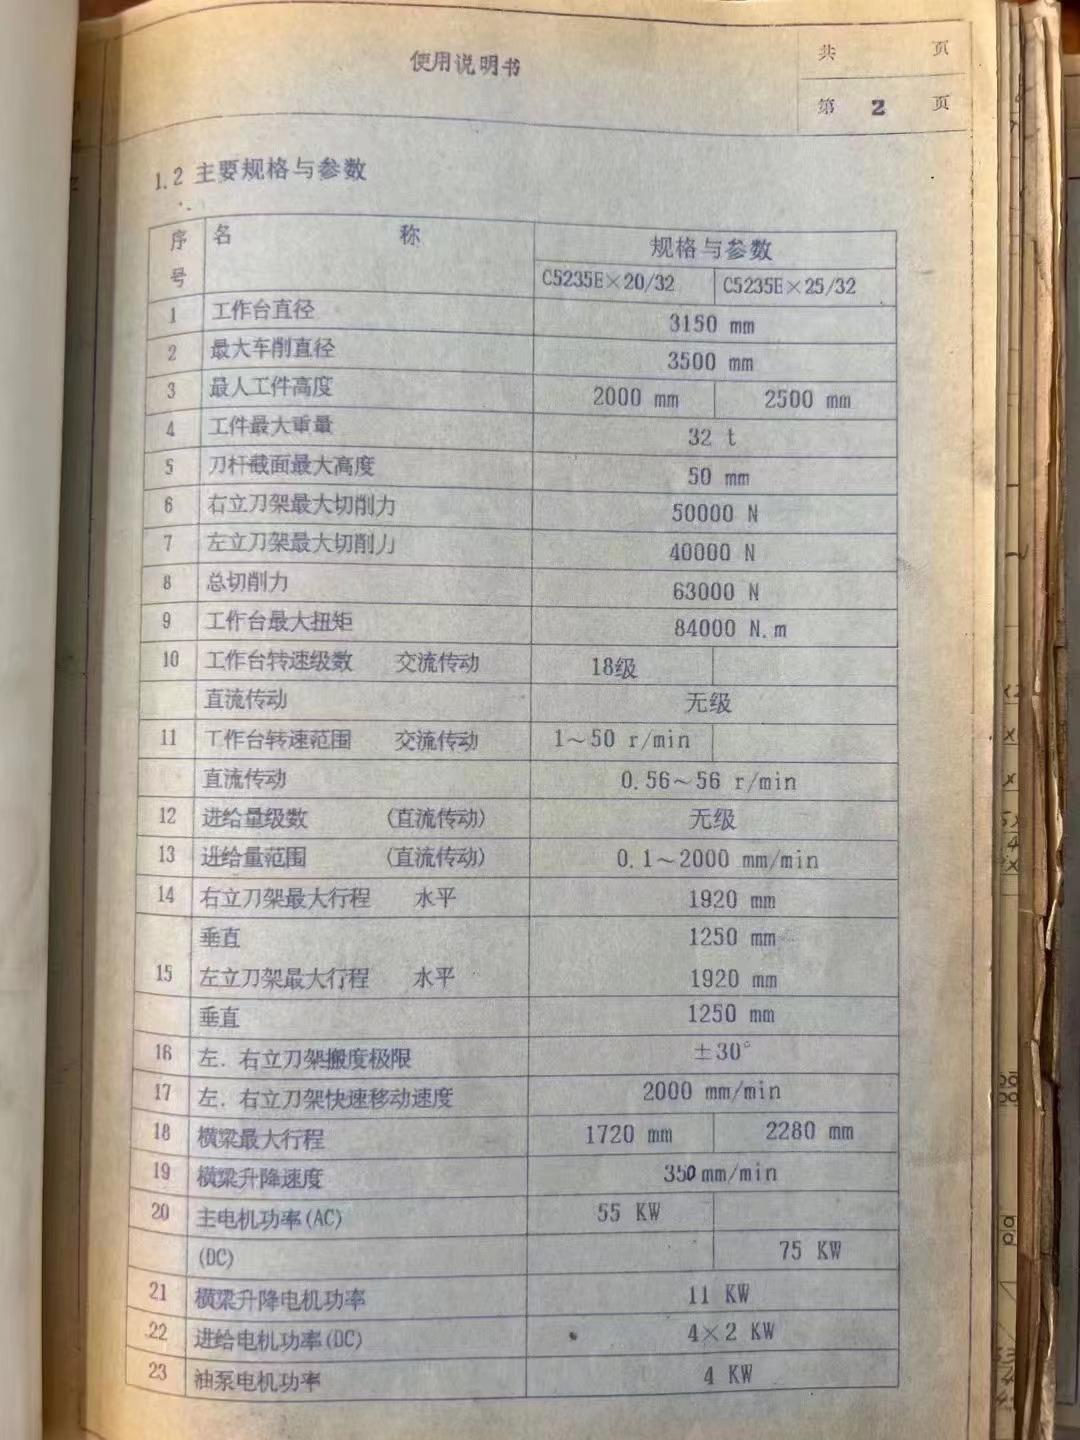 使用说明书
共 页
第 2 页
1.2 主要规格与参数
序号 名 称 规格与参数
C5235E×20/32 C5235E×25/32
1 工作台直径 3150 mm
2 最大车削直径 3500 mm
3 最人工件高度 2000 mm 2500 mm
4 工件最大重量 32 t
5 刀杆截面最大高度 50 mm
6 右立刀架最大切削力 50000 N
7 左立刀架最大切削力 40000 N
8 总切削力 63000 N
9 工作台最大扭矩 84000 N.m
10 工作台转速级数 交流传动 18级
直流传动 无级
11 工作台转速范围 交流传动 1～50 r/min
直流传动 0.56～56 r/min
12 进给量级数 (直流传动) 无级
13 进给量范围 (直流传动) 0.1～2000 mm/min
14 右立刀架最大行程 水平 1920 mm
垂直 1250 mm
15 左立刀架最大行程 水平 1920 mm
垂直 1250 mm
16 左．右立刀架搬度极限 ±30°
17 左．右立刀架快速移动速度 2000 mm/min
18 横梁最大行程 1720 mm 2280 mm
19 横梁升降速度 350mm/min
20 主电机功率(AC) 55 KW
(DC) 75 KW
21 横梁升降电机功率 11 KW
22 进给电机功率(DC) 4×2 KW
23 油泵电机功率 4 KW